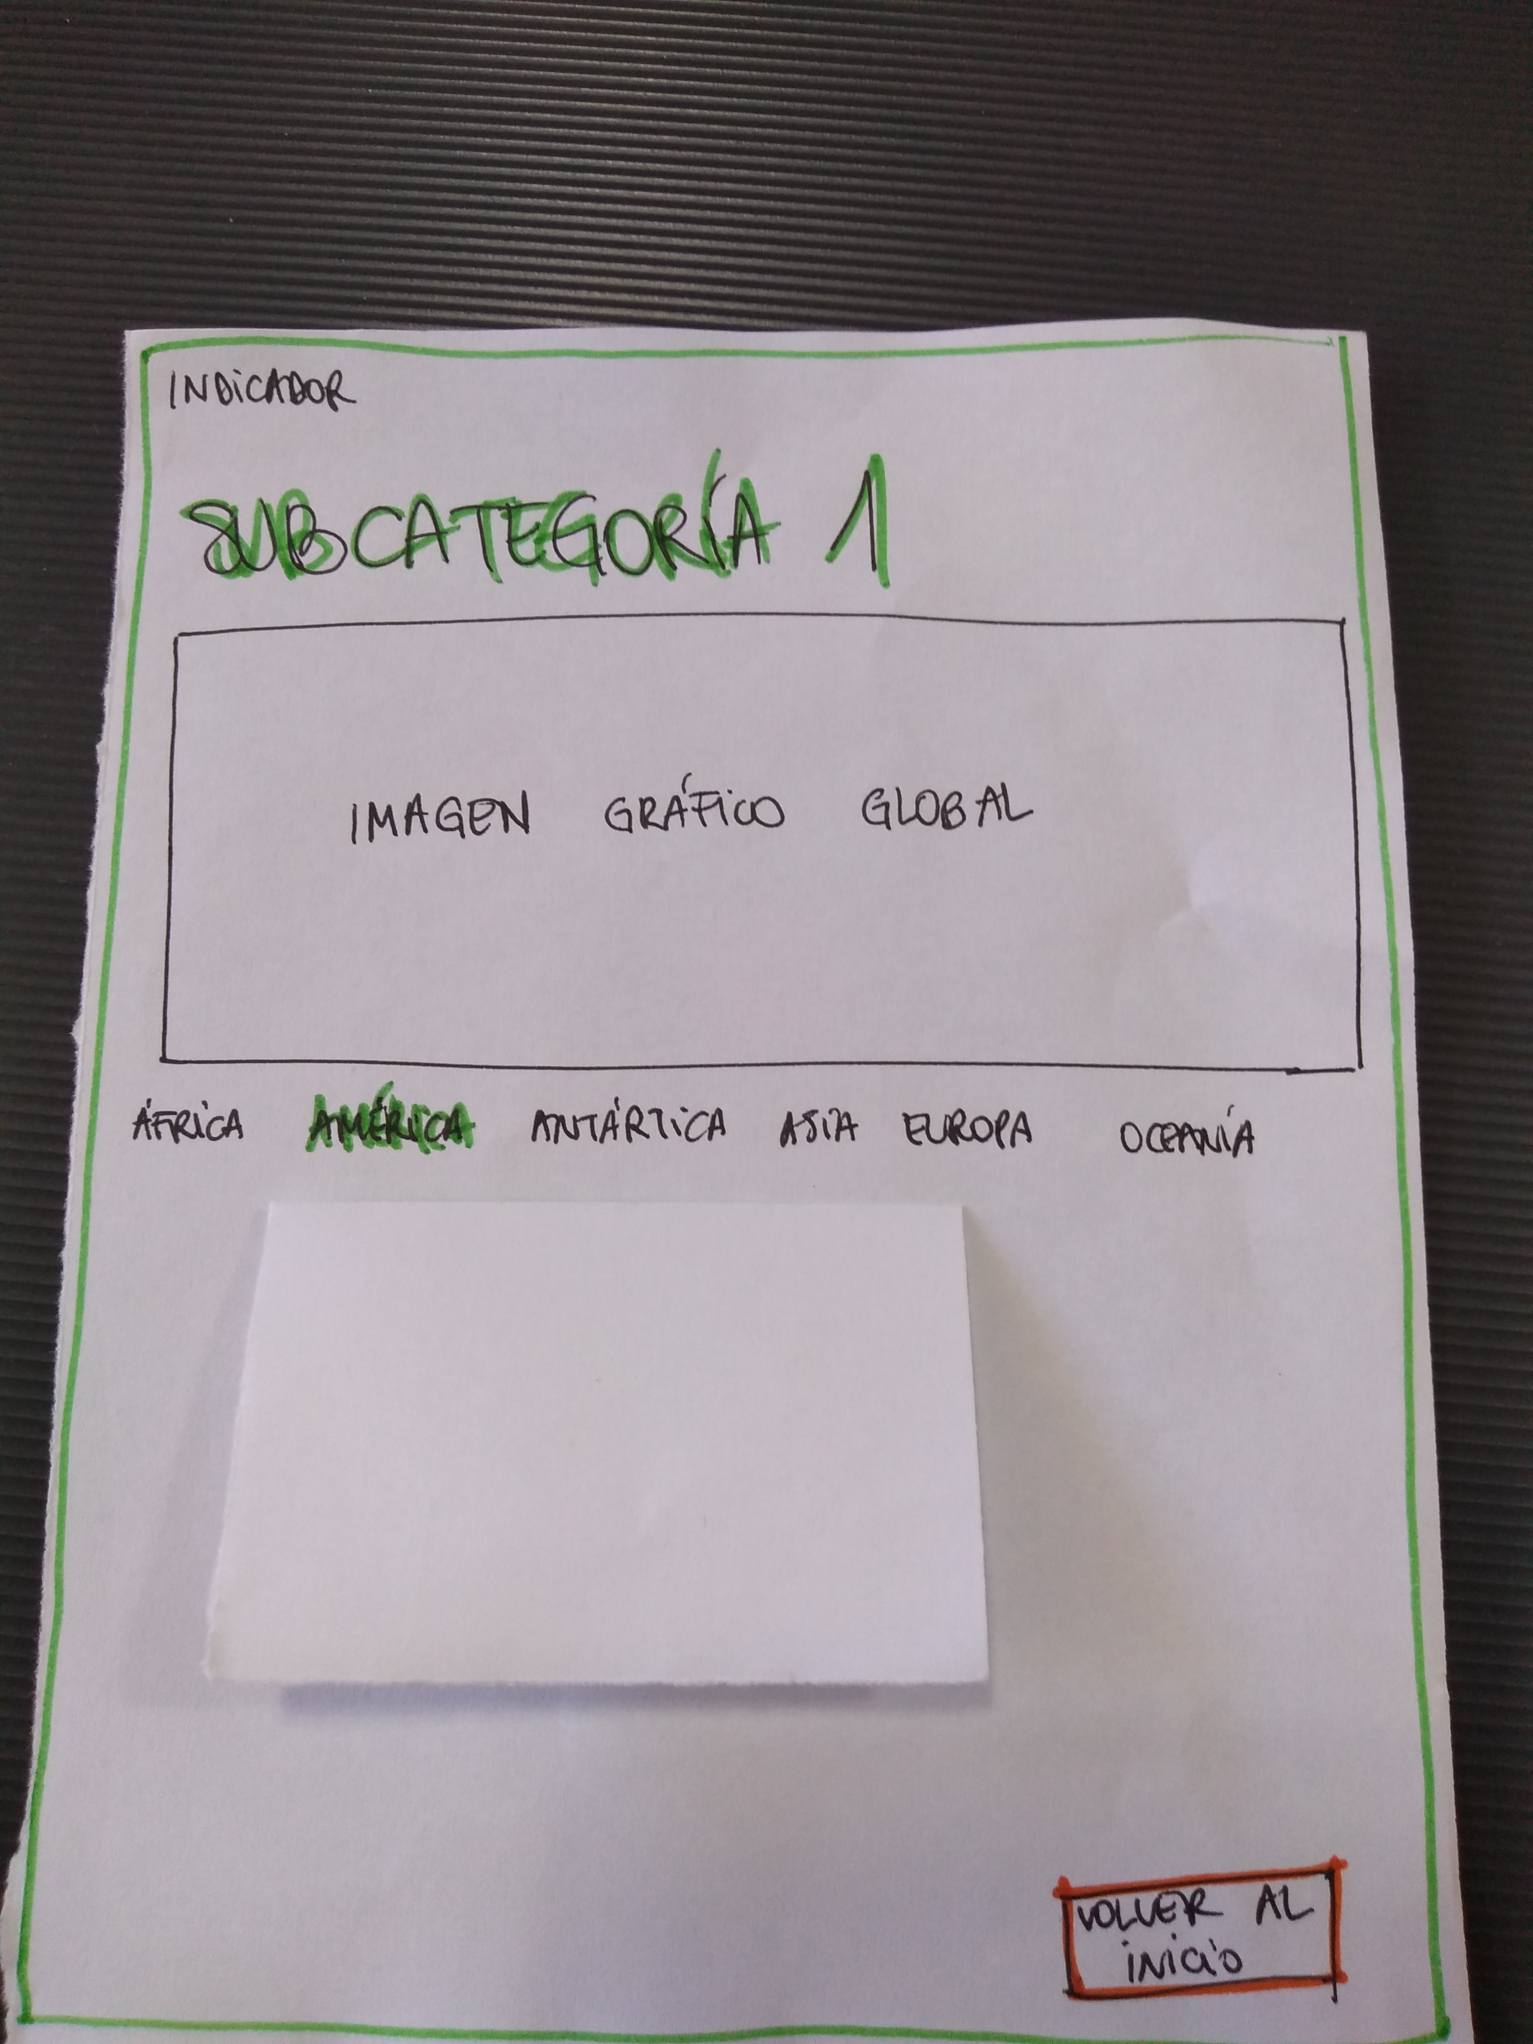 INDICADOR
SUBCATEGORÍA 1
IMAGEN GRÁFICO GLOBAL
ÁFRICA AMÉRICA ANTÁRTICA ASIA EUROPA OCEANÍA
VOLVER AL
INICIO